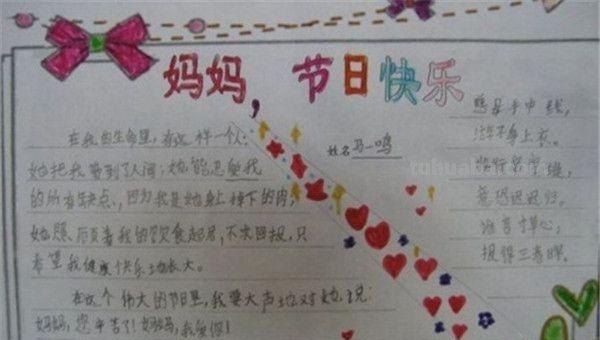 妈妈，节日快乐
在我的生命里，有这样一个人：
她把我带到了人间；她能忍受我
的所有缺点，因为我是她身上掉下的肉，
她照顾着我的饮食起居，不求回报，只
希望我健康快乐地长大。
在这个伟大的节日里，我要大声地对她说：
妈妈，您辛苦了！妈妈，我爱你！
姓名马一鸣
慈母手中线，
身上衣。
临行密密缝，
意恐迟迟归。
谁言寸草心，
报得三春晖。